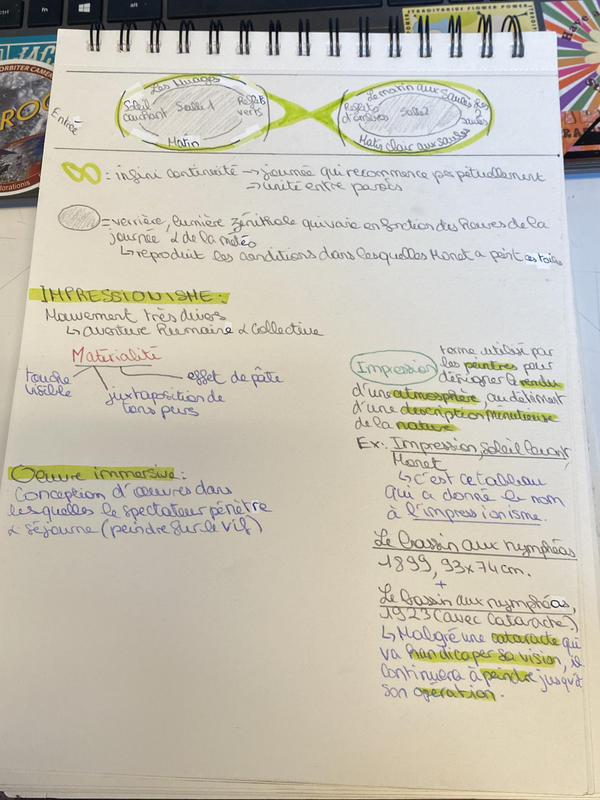 Entrée
Les Nuages
Soleil couchant
Salle 1
Reflets verts
Matin
Le matin aux Saules
Reflets d'arbres
Salle 2
saules
Matin clair aux saules
∞ : infini continuité → journée qui recommence perpétuellement
⇒ unité entre parois
= verrière, lumière zénithale qui varie en fonction des heures de la
journée & de la météo
↳ reproduit les conditions dans lesquelles Monet a peint ses toiles
IMPRESSIONISME :
Mouvement très divers
↳ aventure humaine & collective
Matérialité
touche visible
juxtaposition de
tons purs
effet de pâte
Oeuvre immersive :
Conception d'œuvres dans
lesquelles le spectateur pénètre
& séjourne (peindre sur le vif)
Impression
terme utilisé par
les peintres pour
désigner le rendu
d'une atmosphère, au détriment
d'une description minutieuse
de la nature
Ex: Impression, Soleil Levant,
Monet
↳ c'est ce tableau
qui a donné le nom
à l'impressionisme.
Le Bassin aux nymphéas
1899, 93x74cm.
+
Le Bassin aux nymphéas,
1923 (avec Cataracte)
↳ Malgré une cataracte qui
va handicaper sa vision, il
continuera à peindre jusqu'à
son opération.
JAC
ORBITER CAME
RO
lorations
FLOWER POWER